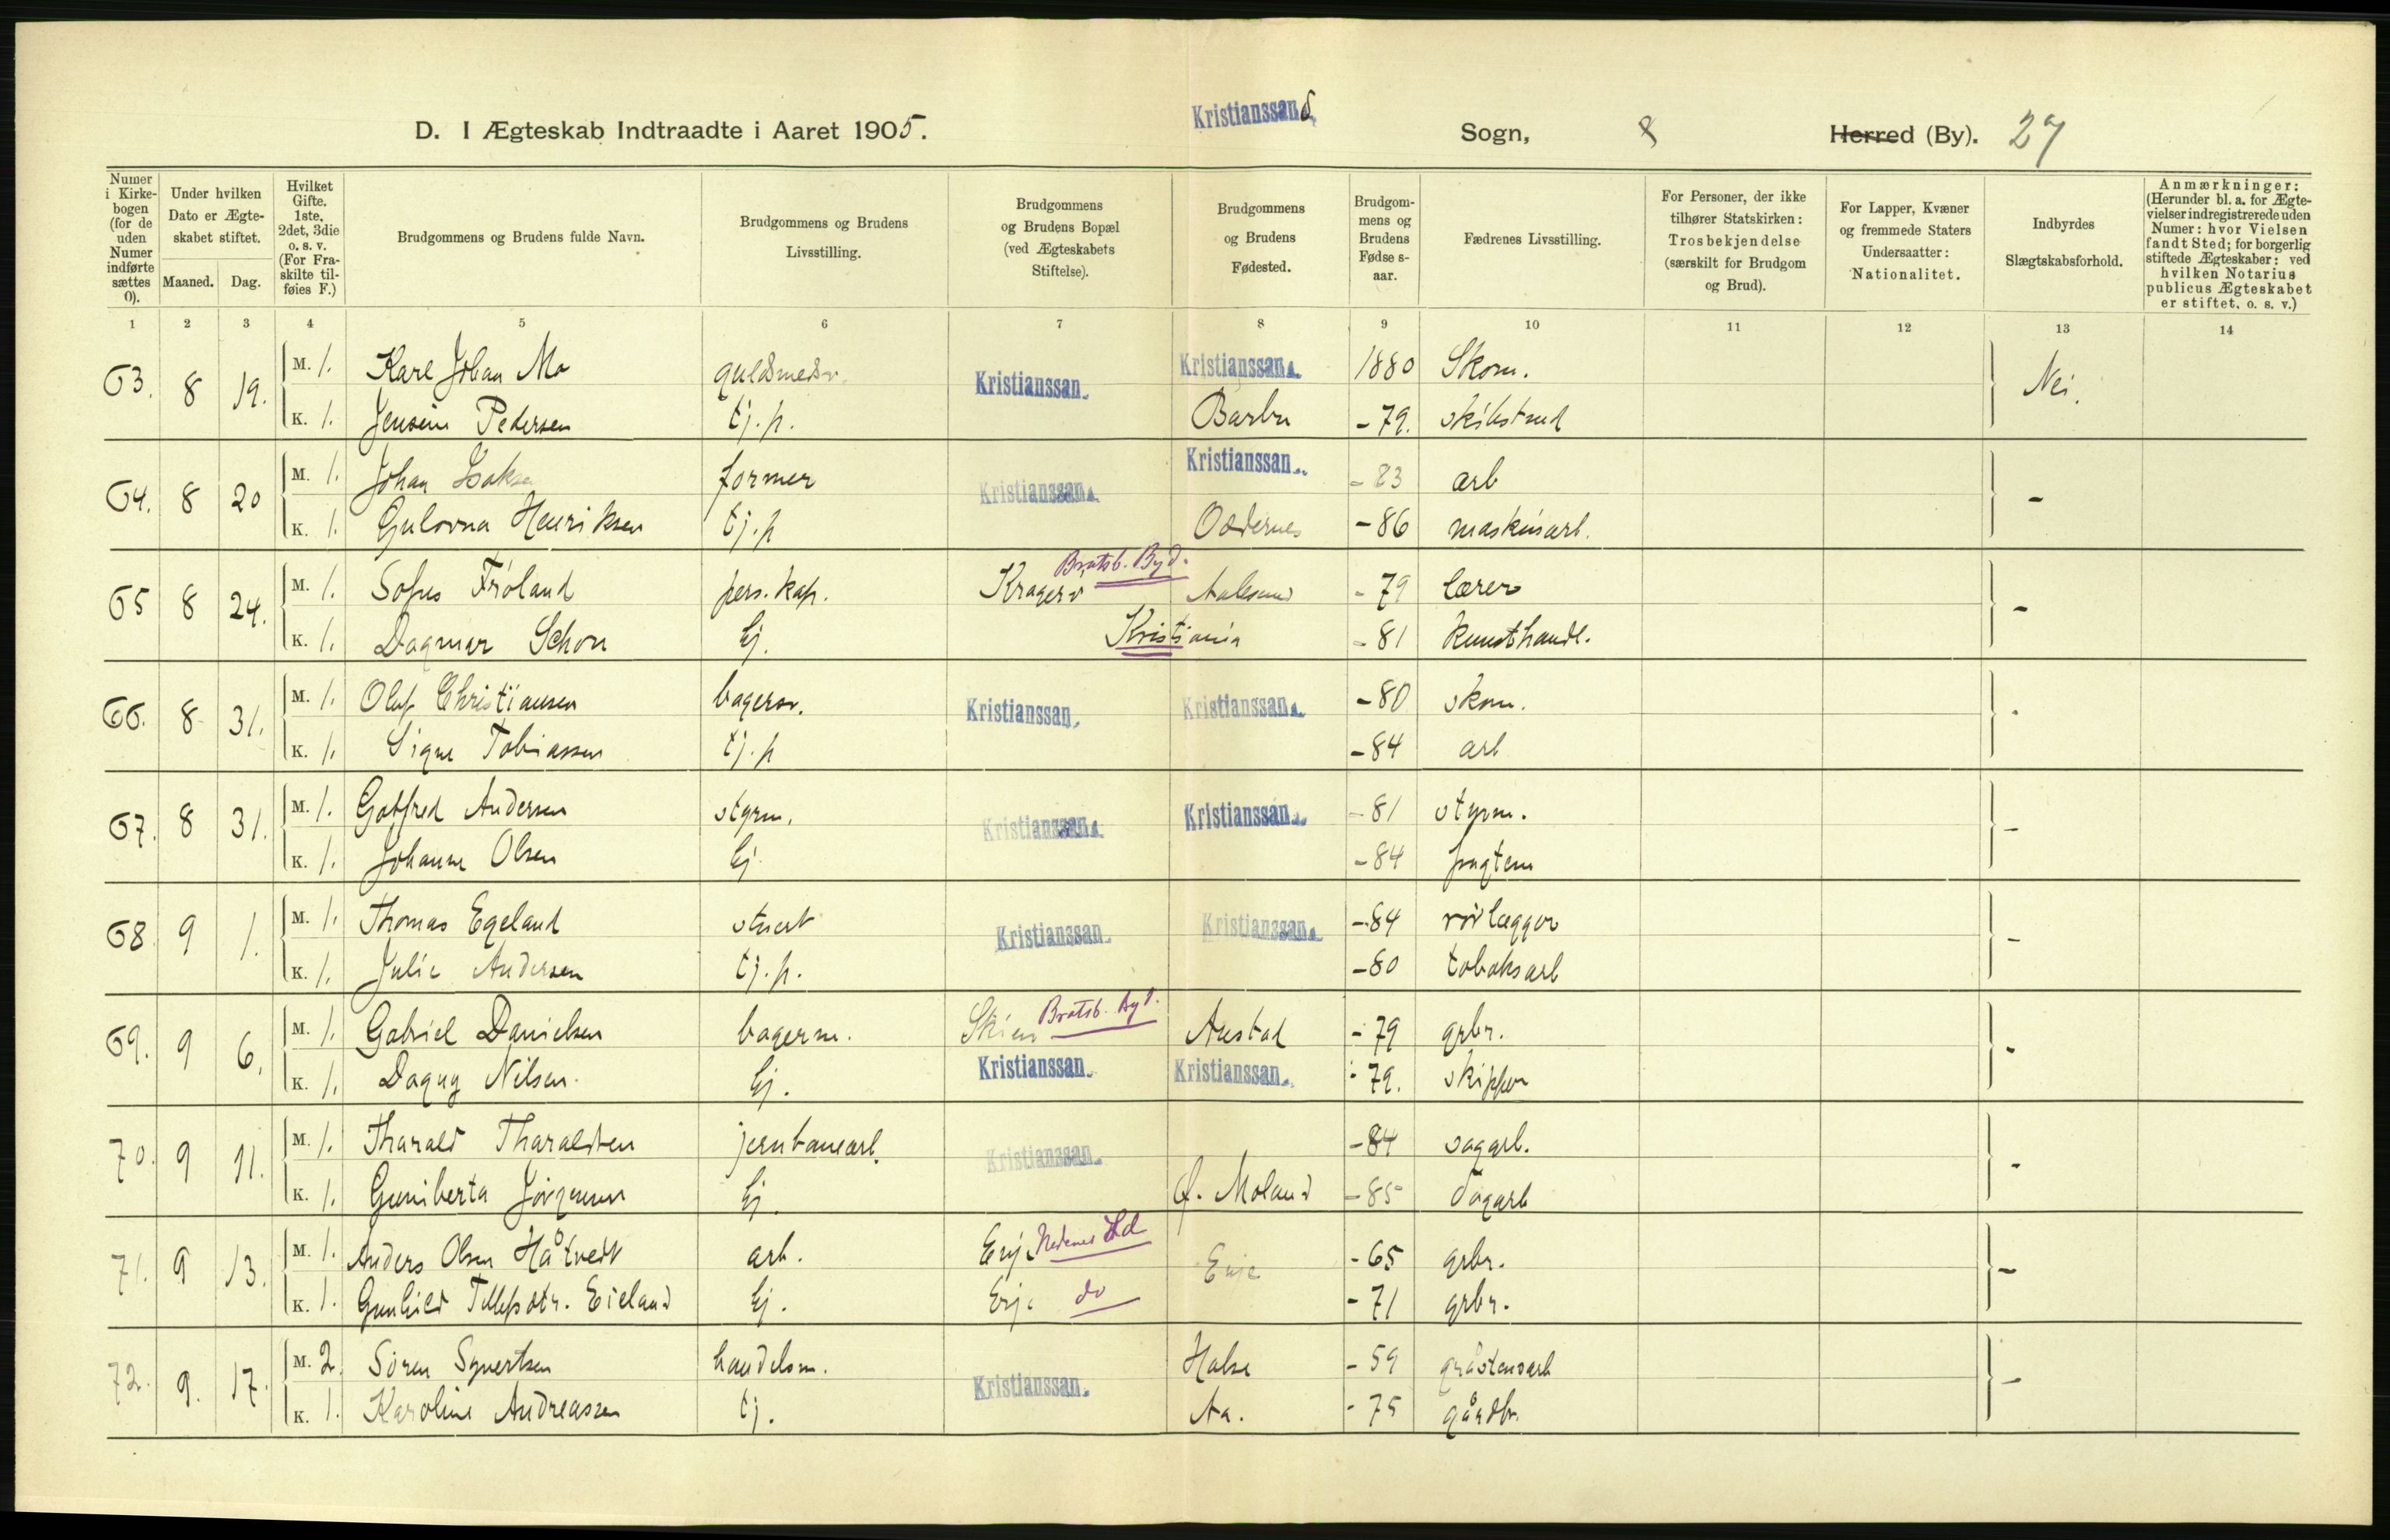 Kristianssand
D. I Ægteskab Indtraadte i Aaret 1905. Sogn, 8 Herred (By). 27
Numer i Kirkebogen (for de uden Numer indførte sættes 0). Under hvilken Dato er Ægteskabet stiftet. Maaned. Dag. Hvilket Gifte. 1ste, 2det, 3die o. s. v. (For Fraskilte tilføies F.) Brudgommens og Brudens fulde Navn. Brudgommens og Brudens Livsstilling. Brudgommens og Brudens Bopæl (ved Ægteskabets Stiftelse). Brudgommens og Brudens Fødested. Brudgommens og Brudens Fødsesaar. Fædrenes Livsstilling. For Personer, der ikke tilhører Statskirken: Trosbekjendelse (særskilt for Brudgom og Brud). For Lapper, Kvæner og fremmede Staters Undersaatter: Nationalitet. Indbyrdes Slægtskabsforhold. Anmærkninger: (Herunder bl. a. for Ægtevielser indregistrerede uden Numer: hvor Vielsen fandt Sted; for borgerlig stiftede Ægteskaber: ved hvilken Notarius publicus Ægteskabet er stiftet, o. s. v.)
1 2 3 4 5 6 7 8 9 10 11 12 13 14
63. 8 19. M. 1. Karl Johan Mo guldsmedsv. Kristianssan. Kristianssan. 1880 Skom. Nei.
K. 1. Jensine Pedersen tj.p. Barbu -79. skibstmd
64. 8 20 M. 1. Johan Isaksen former Kristianssan. Kristianssan. -83 arb -
K. 1. Gulovna Henriksen tj.p Oddernes -86 maskinarb.
65 8 24. M. 1. Sofus Frøland pers. kap. Kragerø Bratsb. Byd. Aalesund -79 lærer -
K. 1. Dagmar Schou Ej. Kristiania -81 Kunsthandl.
66. 8 31. M. 1. Oluf Christiansen bagersv. Kristianssan. Kristianssan. -80 skom. -
K. 1. Signe Tobiassen tj.p -84 arb
67. 8 31. M. 1. Gotfred Andersen styrm. Kristianssan. Kristianssan. -81 styrm. -
K. 1. Johanne Olsen Ej -84 fragtem
68 9 1. M. 1. Thomas Egeland stuert Kristianssan. Kristianssan. -84 rørlægger -
K. 1. Julie Andersen tj.p. -80 tobaksarb
69. 9 6. M. 1. Gabriel Danielsen bagerm. Skien Bratsb. Byd. Austad -79 grbr. -
K. 1. Dagny Nilsen Ej. Kristianssan. Kristianssan. -79. skipper
70. 9 11. M. 1. Tharald Tharaldsen jernbanearb. Kristianssan. -84 sagarb. -
K. 1. Guniberta Jørgensen Ej. Ø. Moland -85 dagarb
71. 9 13. M. 1. Anders Olsen Håtvedt arb. Evje Nedenes Ld Evje -65 grbr. -
K. 1. Gunhild Tellefsdtr. Eieland Ej. Evje do -71 grbr.
72. 9. 17. M. 2. Søren Syvertsen handelsm. Kristianssan. Halse -59 gråstensarb -
K. 1. Karoline Andreassen tj. Aa. -75 gårdbr.